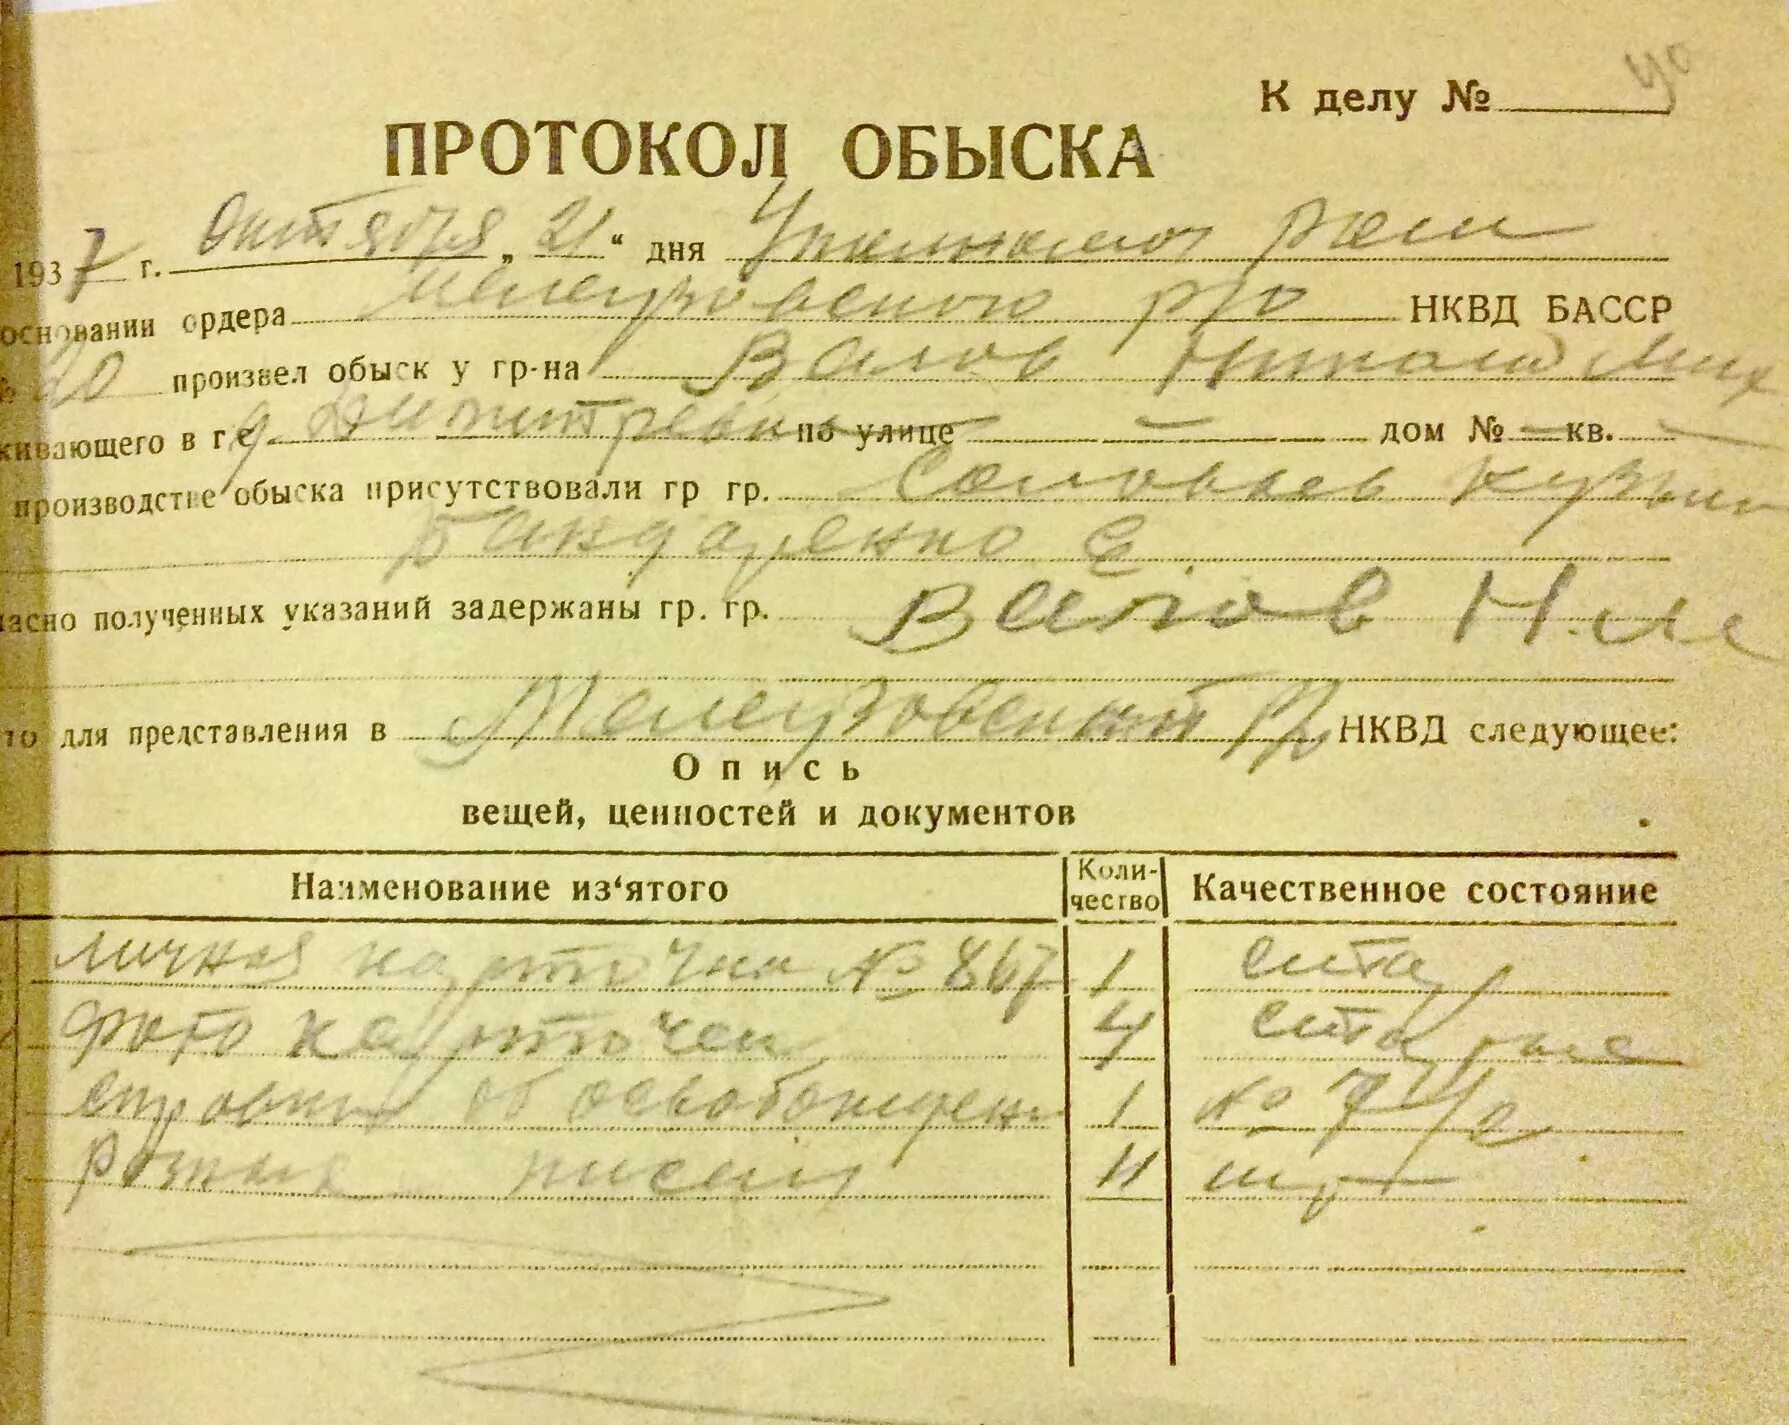 К делу №
ПРОТОКОЛ ОБЫСКА
1937 г. Октября „21“ дня
основании ордера Мелеузовского р/о НКВД БАССР
20 произвел обыск у гр-на Валов Никол Мих
живающего в г с д Димитревка по улице — дом № — кв. —
производстве обыска присутствовали гр гр. Соловьев Кузьм
Бандаренко Е.
ласно полученных указаний задержаны гр. гр. Валов Н.М
то для представления в Мелеузовский НКВД следующее:
Опись
вещей, ценностей и документов
Наименование из‘ятого Коли-чество Качественное состояние
личная карточка № 867 1 стар
Фото карточек 4 старые
справка об освобожден 1 №
разных писем 4 шт